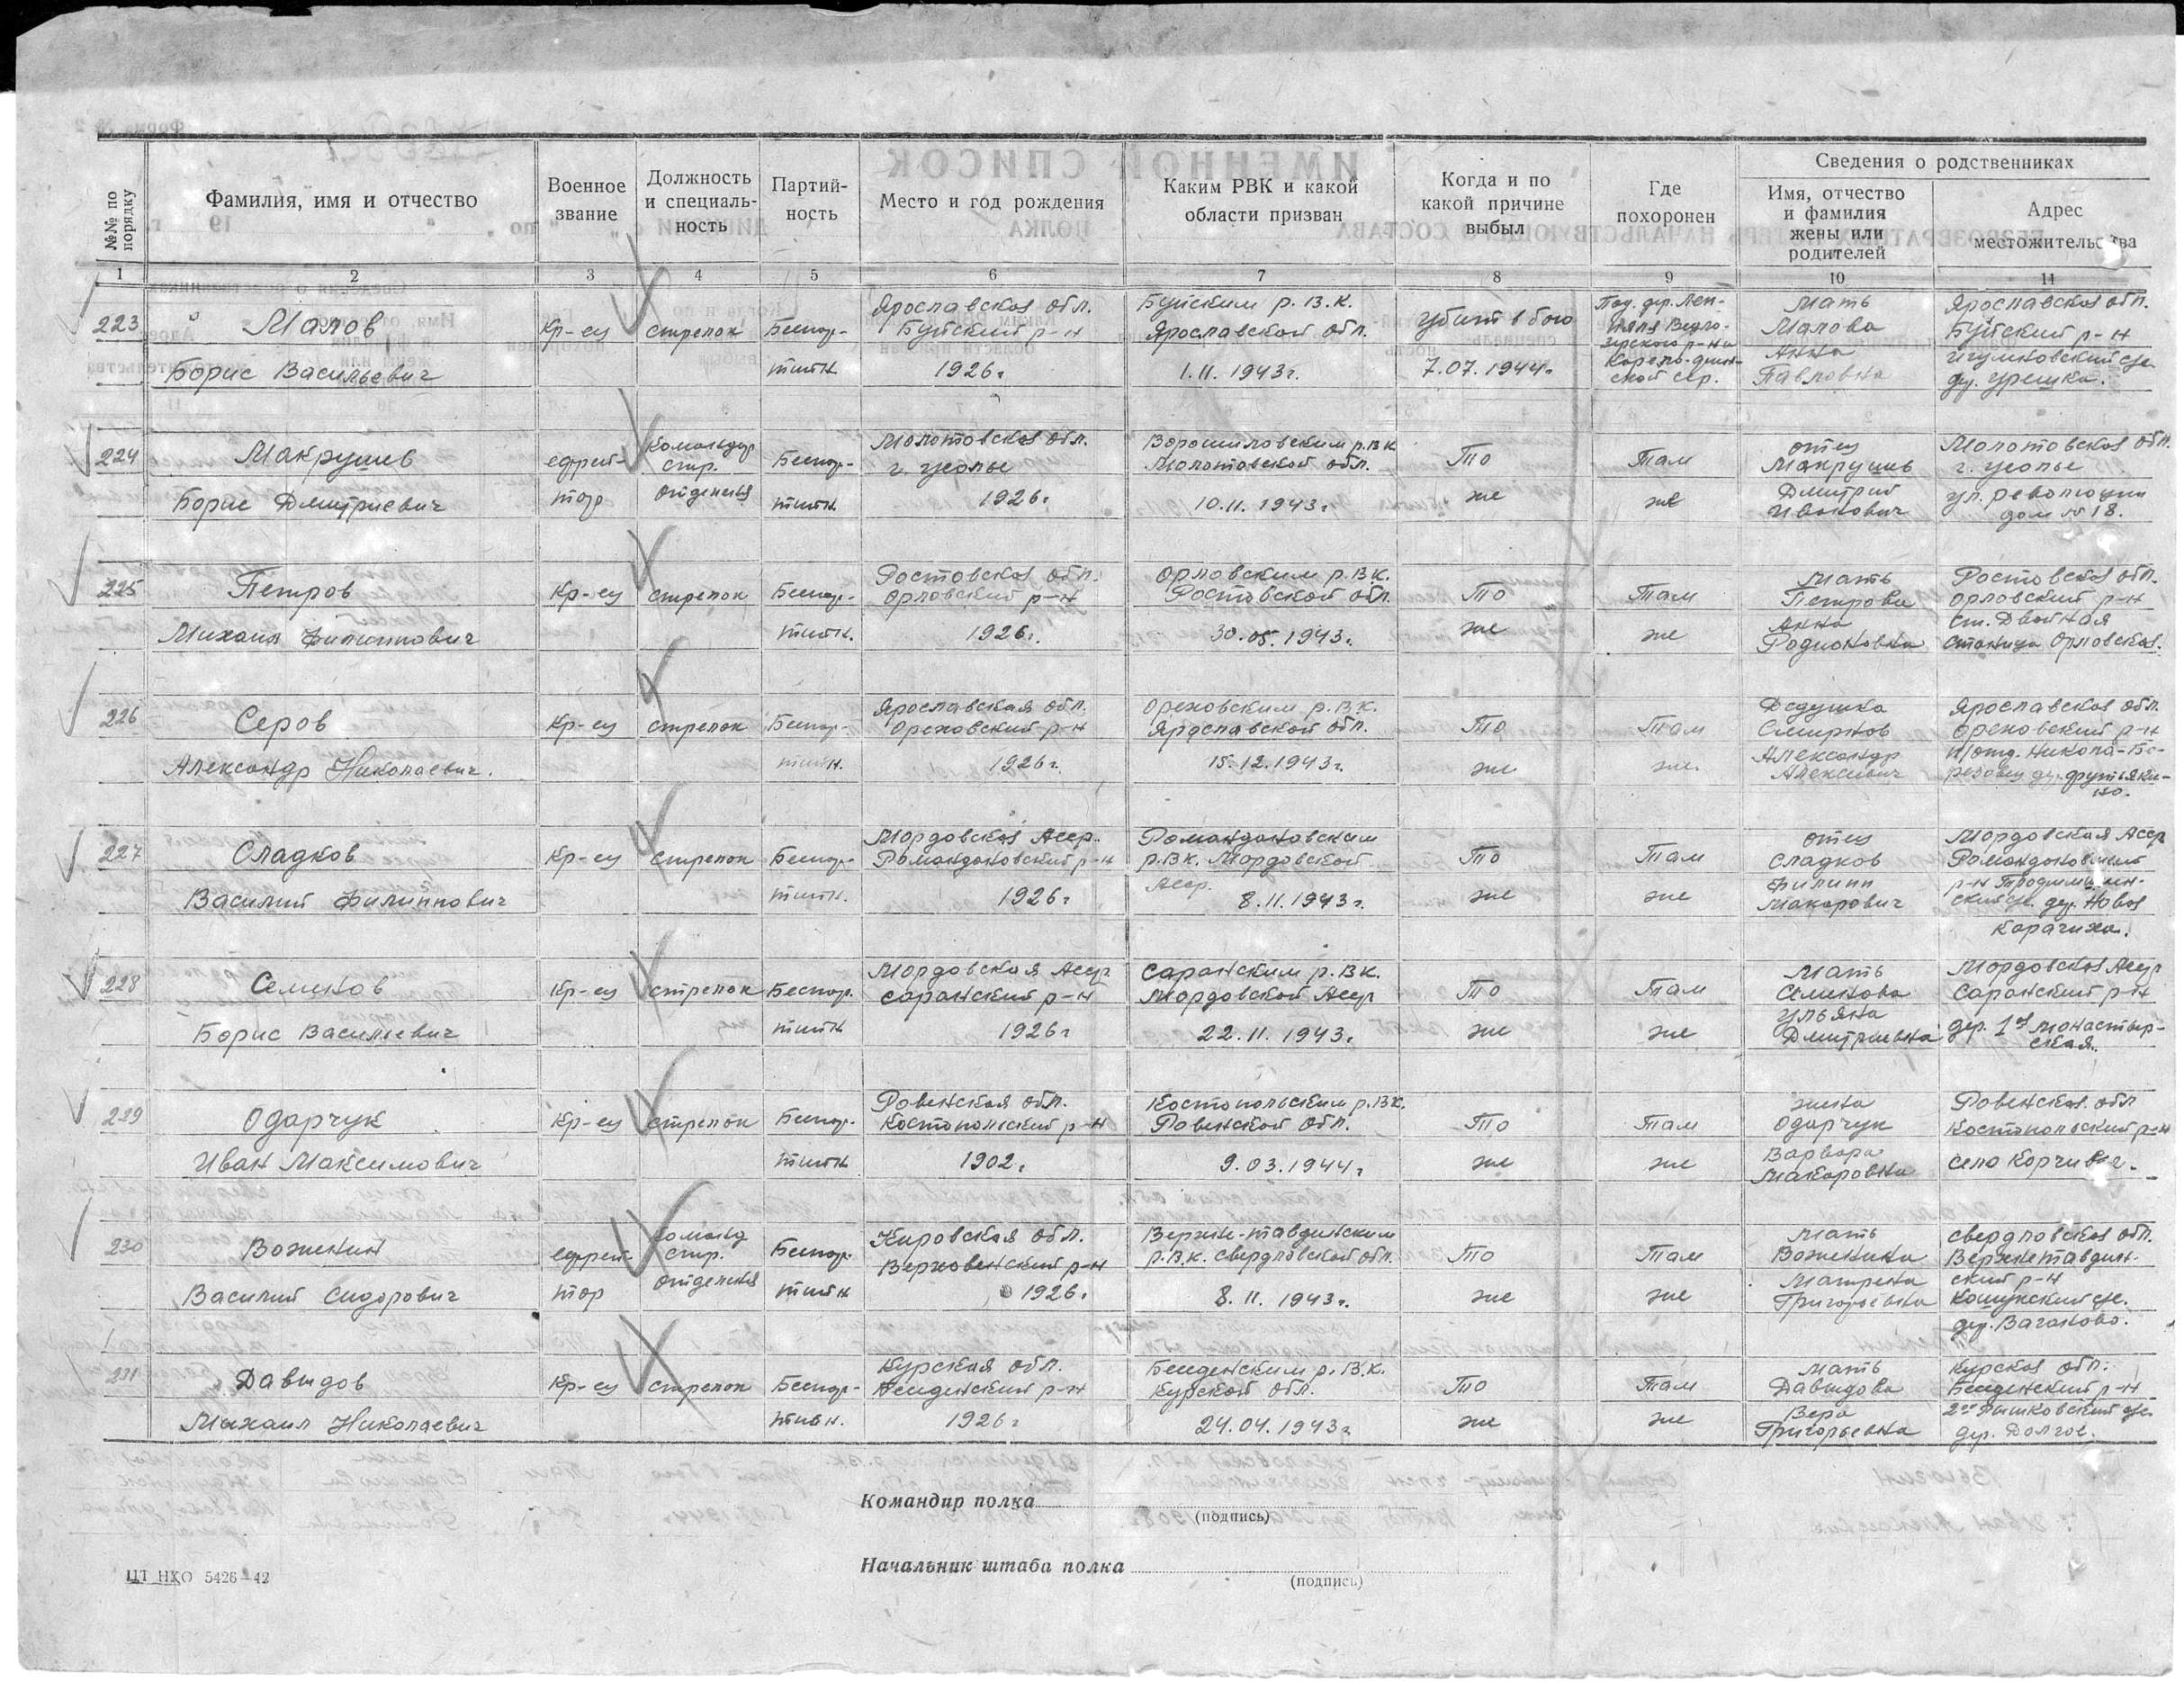 №№ по порядку
Фамилия, имя и отчество
Военное звание
Должность и специаль-ность
Партий-ность
Место и год рождения
Каким РВК и какой области призван
Когда и по какой причине выбыл
Где похоронен
Сведения о родственниках
Имя, отчество и фамилия жены или родителей
Адрес местожительства
1 2 3 4 5 6 7 8 9 10 11
223 Малов Кр-ец стрелок Беспар- Ярославская обл. Буйский р-н Буйским р.В.К. Ярославской обл. Убит в бою Мать Малова Ярославская обл. Буйский р-н
Борис Васильевич тийн 1926г 1.11.1943г. 7.07.1944г Анна Павловна
224 Макрушев ефрей- Командир стр. Беспар- Молотовская обл. г. Усолье Ворошиловским р.ВК Молотовской обл. То Там отец Макрушев Молотовская обл. г. Усолье
Борис Дмитриевич тор отделения тийн 1926г 10.11.1943г же же Дмитрий Иванович ул. революции дом № 18.
225 Петров Кр-ец стрелок Беспар- Ростовская обл. Орловский р-н Орловским р.ВК. Ростовской обл. То Там Мать Петрова Ростовская обл. Орловский р-н
Михаил Филиппович тийн. 1926г. 30.05.1943г. же же Анна Родионовна ст. Двойная станица Орловская.
226 Серов Кр-ец стрелок Беспар- Ярославская обл. Ореховский р-н Ореховским р.ВК. Ярославской обл. То Там Дедушка Смирнов Ярославская обл. Ореховский р-н
Александр Николаевич. тийн. 1926г. 15.12.1943г. же же. Александр Алексеевич п/отд. Никола-Бе-
227 Сладков Кр-ец стрелок Беспар- Мордовская Асср. Ромодановский р-н Ромодановским р.ВК. Мордовской То Там отец Сладков Мордовская Асср Ромодановский
Василий Филиппович тийн. 1926г Асср. 8.11.1943г. же же Филипп Макарович дер. Новая
Карачиха.
228 Семенов Кр-ец стрелок Беспар. Мордовская Асср Саранский р-н Саранским р.ВК. Мордовской Асср То Там Мать Семенова Мордовская Асср Саранский р-н
Борис Васильевич тийн 1926г 22.11.1943г. же же Ульяна Дмитриевна дер. 1ая Монастыр-ская.
229 Одарчук Кр-ец стрелок Беспар- Ровенская обл. Костопольский р-н Костопольским р.ВК. Ровенской обл. То Там жена Одарчук Ровенская обл Костопольский р-н
Иван Максимович тийн 1902г 9.03.1944г же же Варвара Макаровна село
230 Воженин ефрей- команд стр. Беспар- Кировская обл. Верховенский р-н Верхне-тавдинским р.В.К. Свердловской обл. То Там Мать Воженина Свердловская обл. Верхнетавдин-
Василий Сидорович тор отделения тийн 1926г 8.11.1943г. же же Матрена Григорьевна ский р-н
дер. Ваганово.
231 Давыдов Кр-ец стрелок Беспар- Курская обл. р-н р.ВК. Курской обл. То Там Мать Давыдова Курская обл. р-н
Михаил Николаевич тийн. 1926г 24.04.1943г же же Вера Григорьевна дер. Долгое.
Командир полка
(подпись)
Начальник штаба полка
(подпись)
ЦТ НКО 5426—42